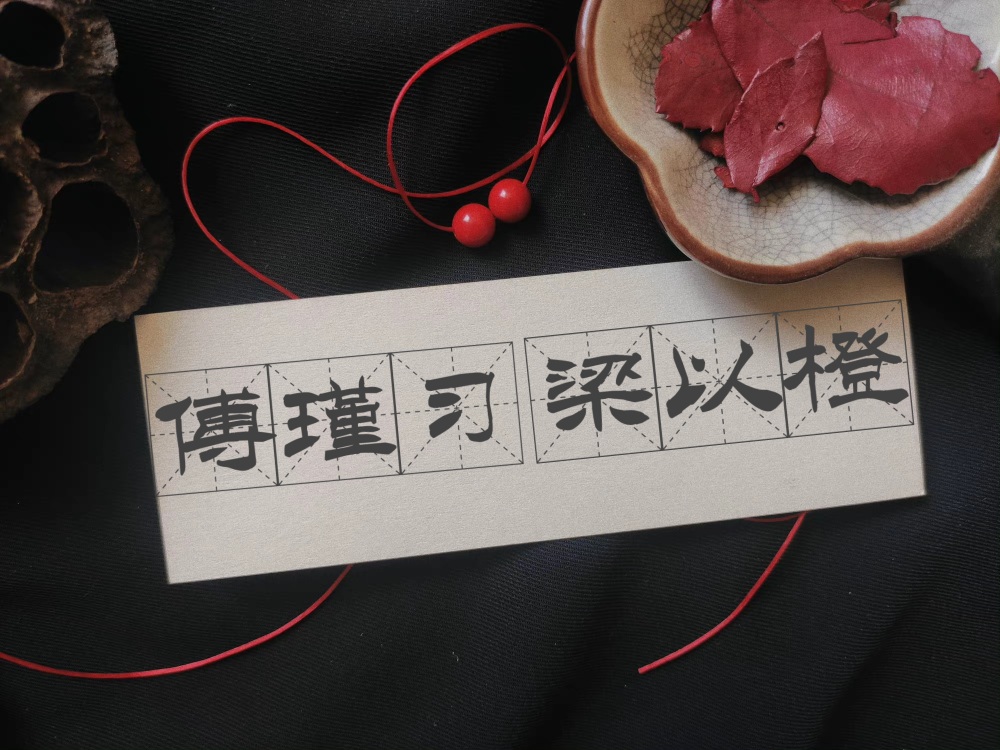 傅瑾习 梁以橙